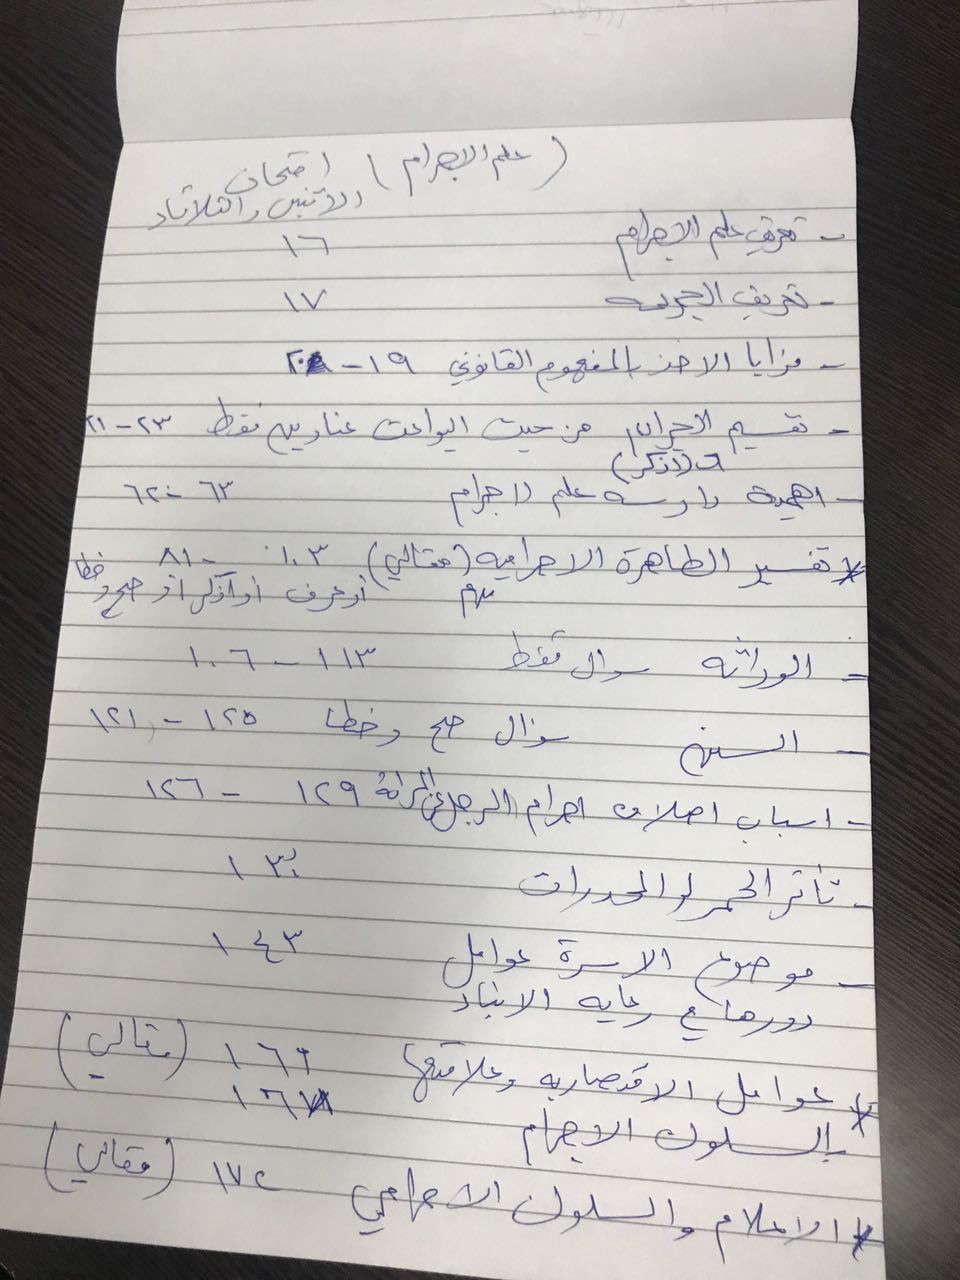 (علم الاجرام) امتحان
الاثنين والثلاثاء
- تعريف علم الاجرام ١٦
- تعريف الجريمه ١٧
- مزايا الاخذ بالمفهوم القانوني ١٩ -
- تقسيم الاجرام من حيث البواعث عناوين فقط ٢٣ - ٢١
(اذكر)
- اهمية دارسه علم لاجرام ٦٣ - ٦٢
* تفسير الظاهرة الاجراميه (مقالي) ١٠٣ - ٨١
او عرف او اذكر او صح وخطا
- الوراثه سوال فقط ١١٣ - ١٠٦
- السن سؤال صح وخطا ١٢٥ - ١٢١
- اسباب اختلاف اجرام الرجل عن المرأة ١٢٩ - ١٢٦
- تأثر الخمر او المخدرات ١٣٠
- موضوع الاسرة عوامل ١٤٣
دورها في رعايه الابناء
* عوامل الاقتصاديه وعلاقتها ١٦٢ (مقالي)
بالسلوك الاجرام
* الاعلام والسلوك الاجرامي ١٧٢ (مقالي)